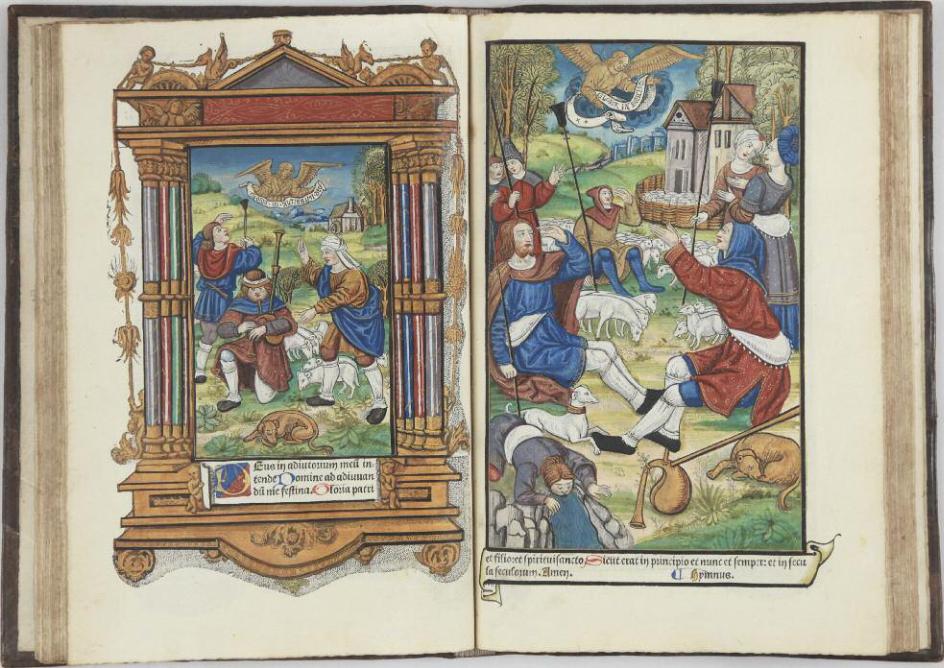 Deus in adiutorium meū in-
tende Domine ad adiuuan
dū me festina. Gloria patri
et filio: et spirituisancto Sicut erat in principio et nunc et semper: et in secu
la seculorum. Amen. ¶ Hymnus.